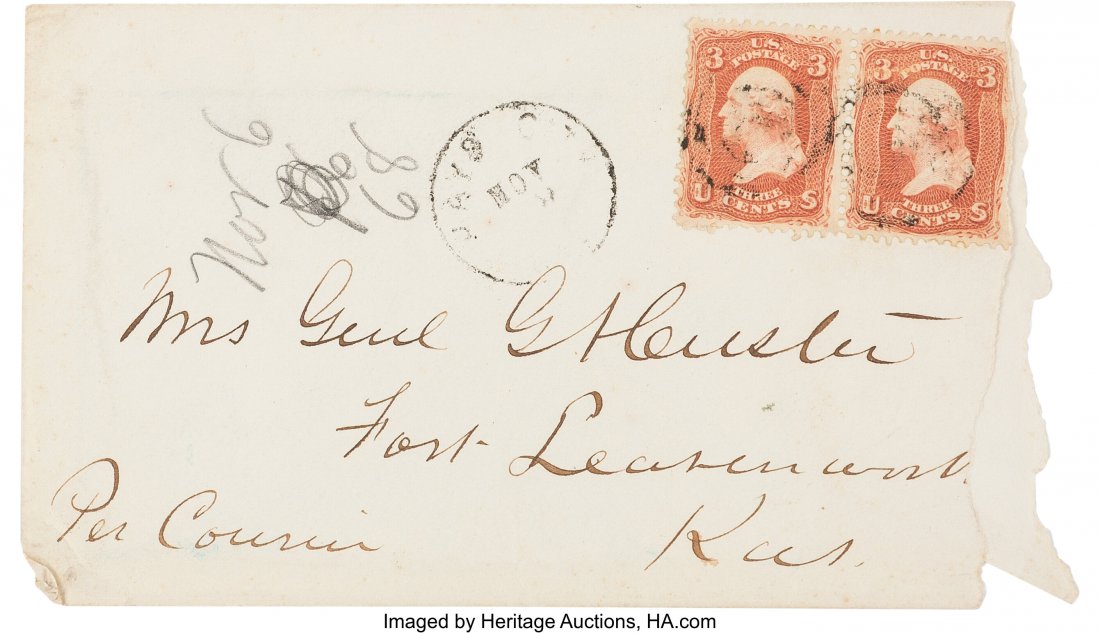 U.S. POSTAGE
3 3
THREE
U CENTS S
U.S. POSTAGE
3 3
THREE
U CENTS S
Nov 6
68
CITY
NOV
Mrs Genl GACuster
Fort Leavenworth
Kas.
Per Courier
Imaged by Heritage Auctions, HA.com